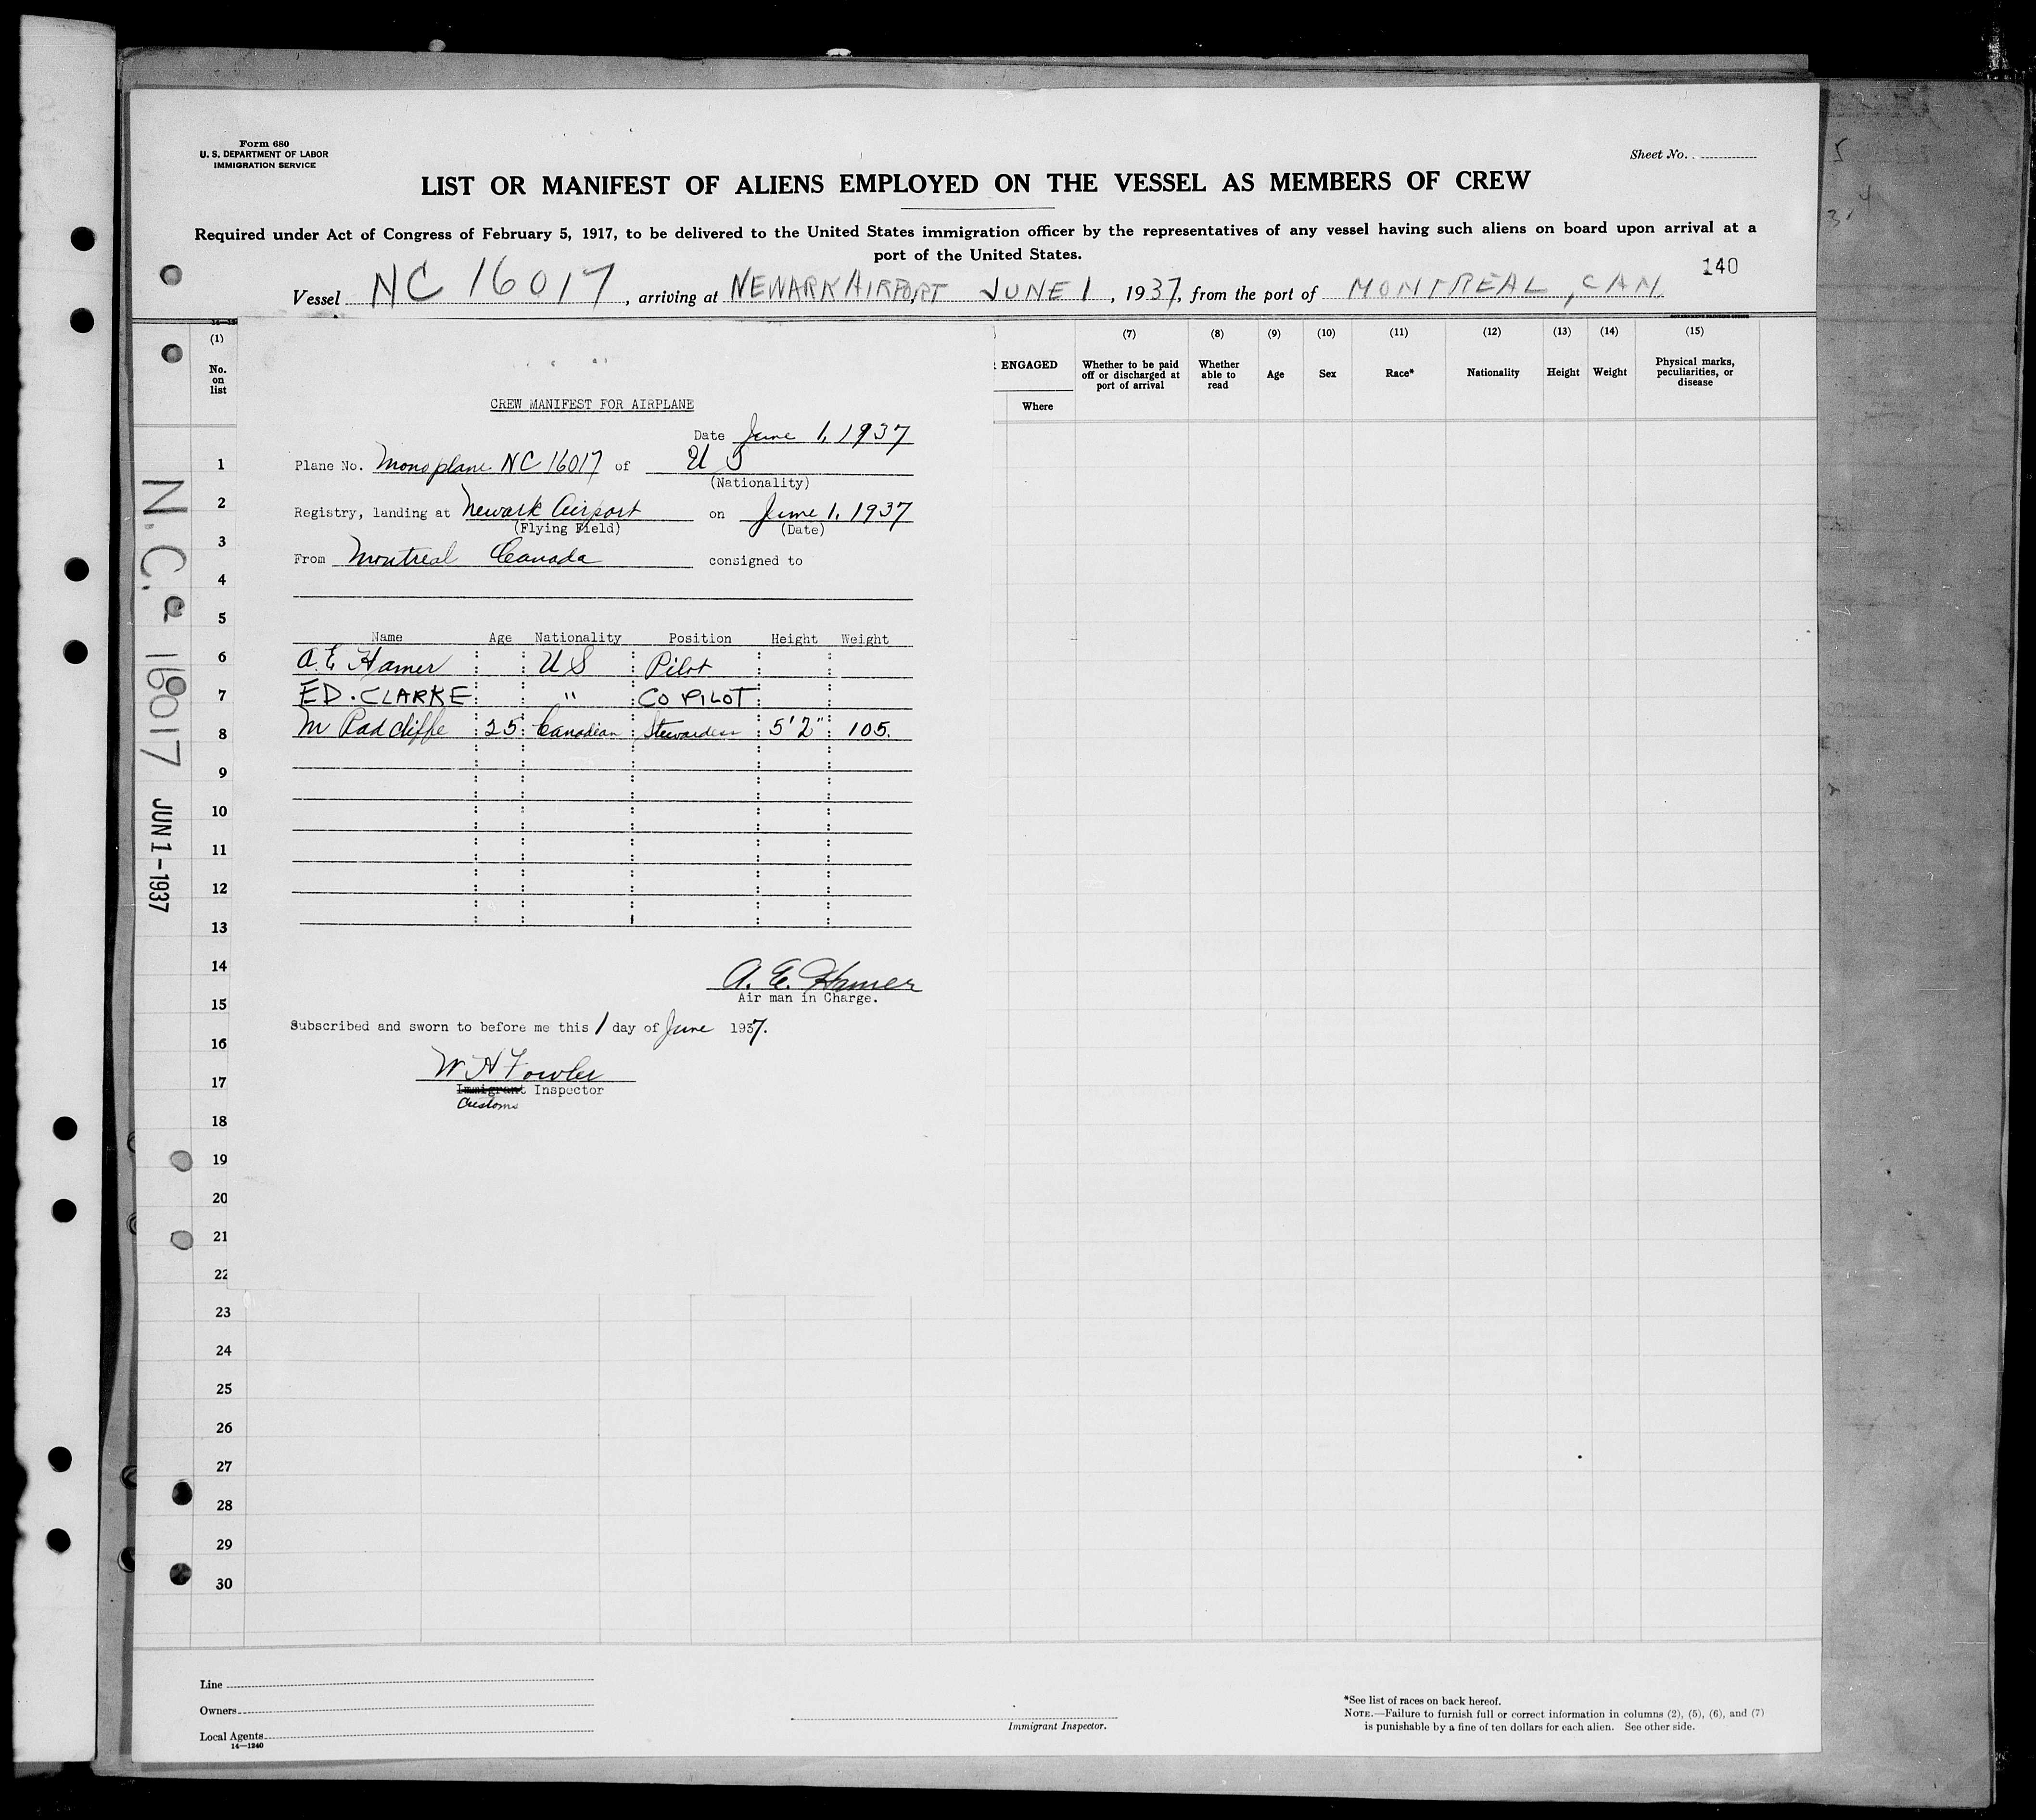 Form 680
U. S. DEPARTMENT OF LABOR
IMMIGRATION SERVICE
Sheet No.
LIST OR MANIFEST OF ALIENS EMPLOYED ON THE VESSEL AS MEMBERS OF CREW
Required under Act of Congress of February 5, 1917, to be delivered to the United States immigration officer by the representatives of any vessel having such aliens on board upon arrival at a
port of the United States.
140
Vessel NC 16017, arriving at NEWARK AIRPORT JUNE 1, 1937, from the port of MONTREAL, CAN.
(1) (7) (8) (9) (10) (11) (12) (13) (14) (15)
No. on list ENGAGED Where Whether to be paid off or discharged at port of arrival Whether able to read Age Sex Race* Nationality Height Weight Physical marks, peculiarities, or disease
CREW MANIFEST FOR AIRPLANE
Date June 1, 1937
Plane No. Monoplane NC 16017 of U S
(Nationality)
Registry, landing at Newark Airport on June 1, 1937
(Flying Field) (Date)
From Montreal Canada consigned to
Name Age Nationality Position Height Weight
A.E Hamer U S Pilot
ED. CLARKE " CO PILOT
M Radcliffe 25 Canadian Stewardess 5'2" 105.
A. E. Hamer
Air man in Charge.
Subscribed and sworn to before me this 1 day of June 1937.
W H Fowler
Immigrant Inspector
Customs
1
2
3
4
5
6
7
8
9
10
11
12
13
14
15
16
17
18
19
20
21
22
23
24
25
26
27
28
29
30
N.C. 16017 JUN 1-1937
Line
Owners
Local Agents
14—1240
Immigrant Inspector.
*See list of races on back hereof.
NOTE.—Failure to furnish full or correct information in columns (2), (5), (6), and (7)
is punishable by a fine of ten dollars for each alien. See other side.